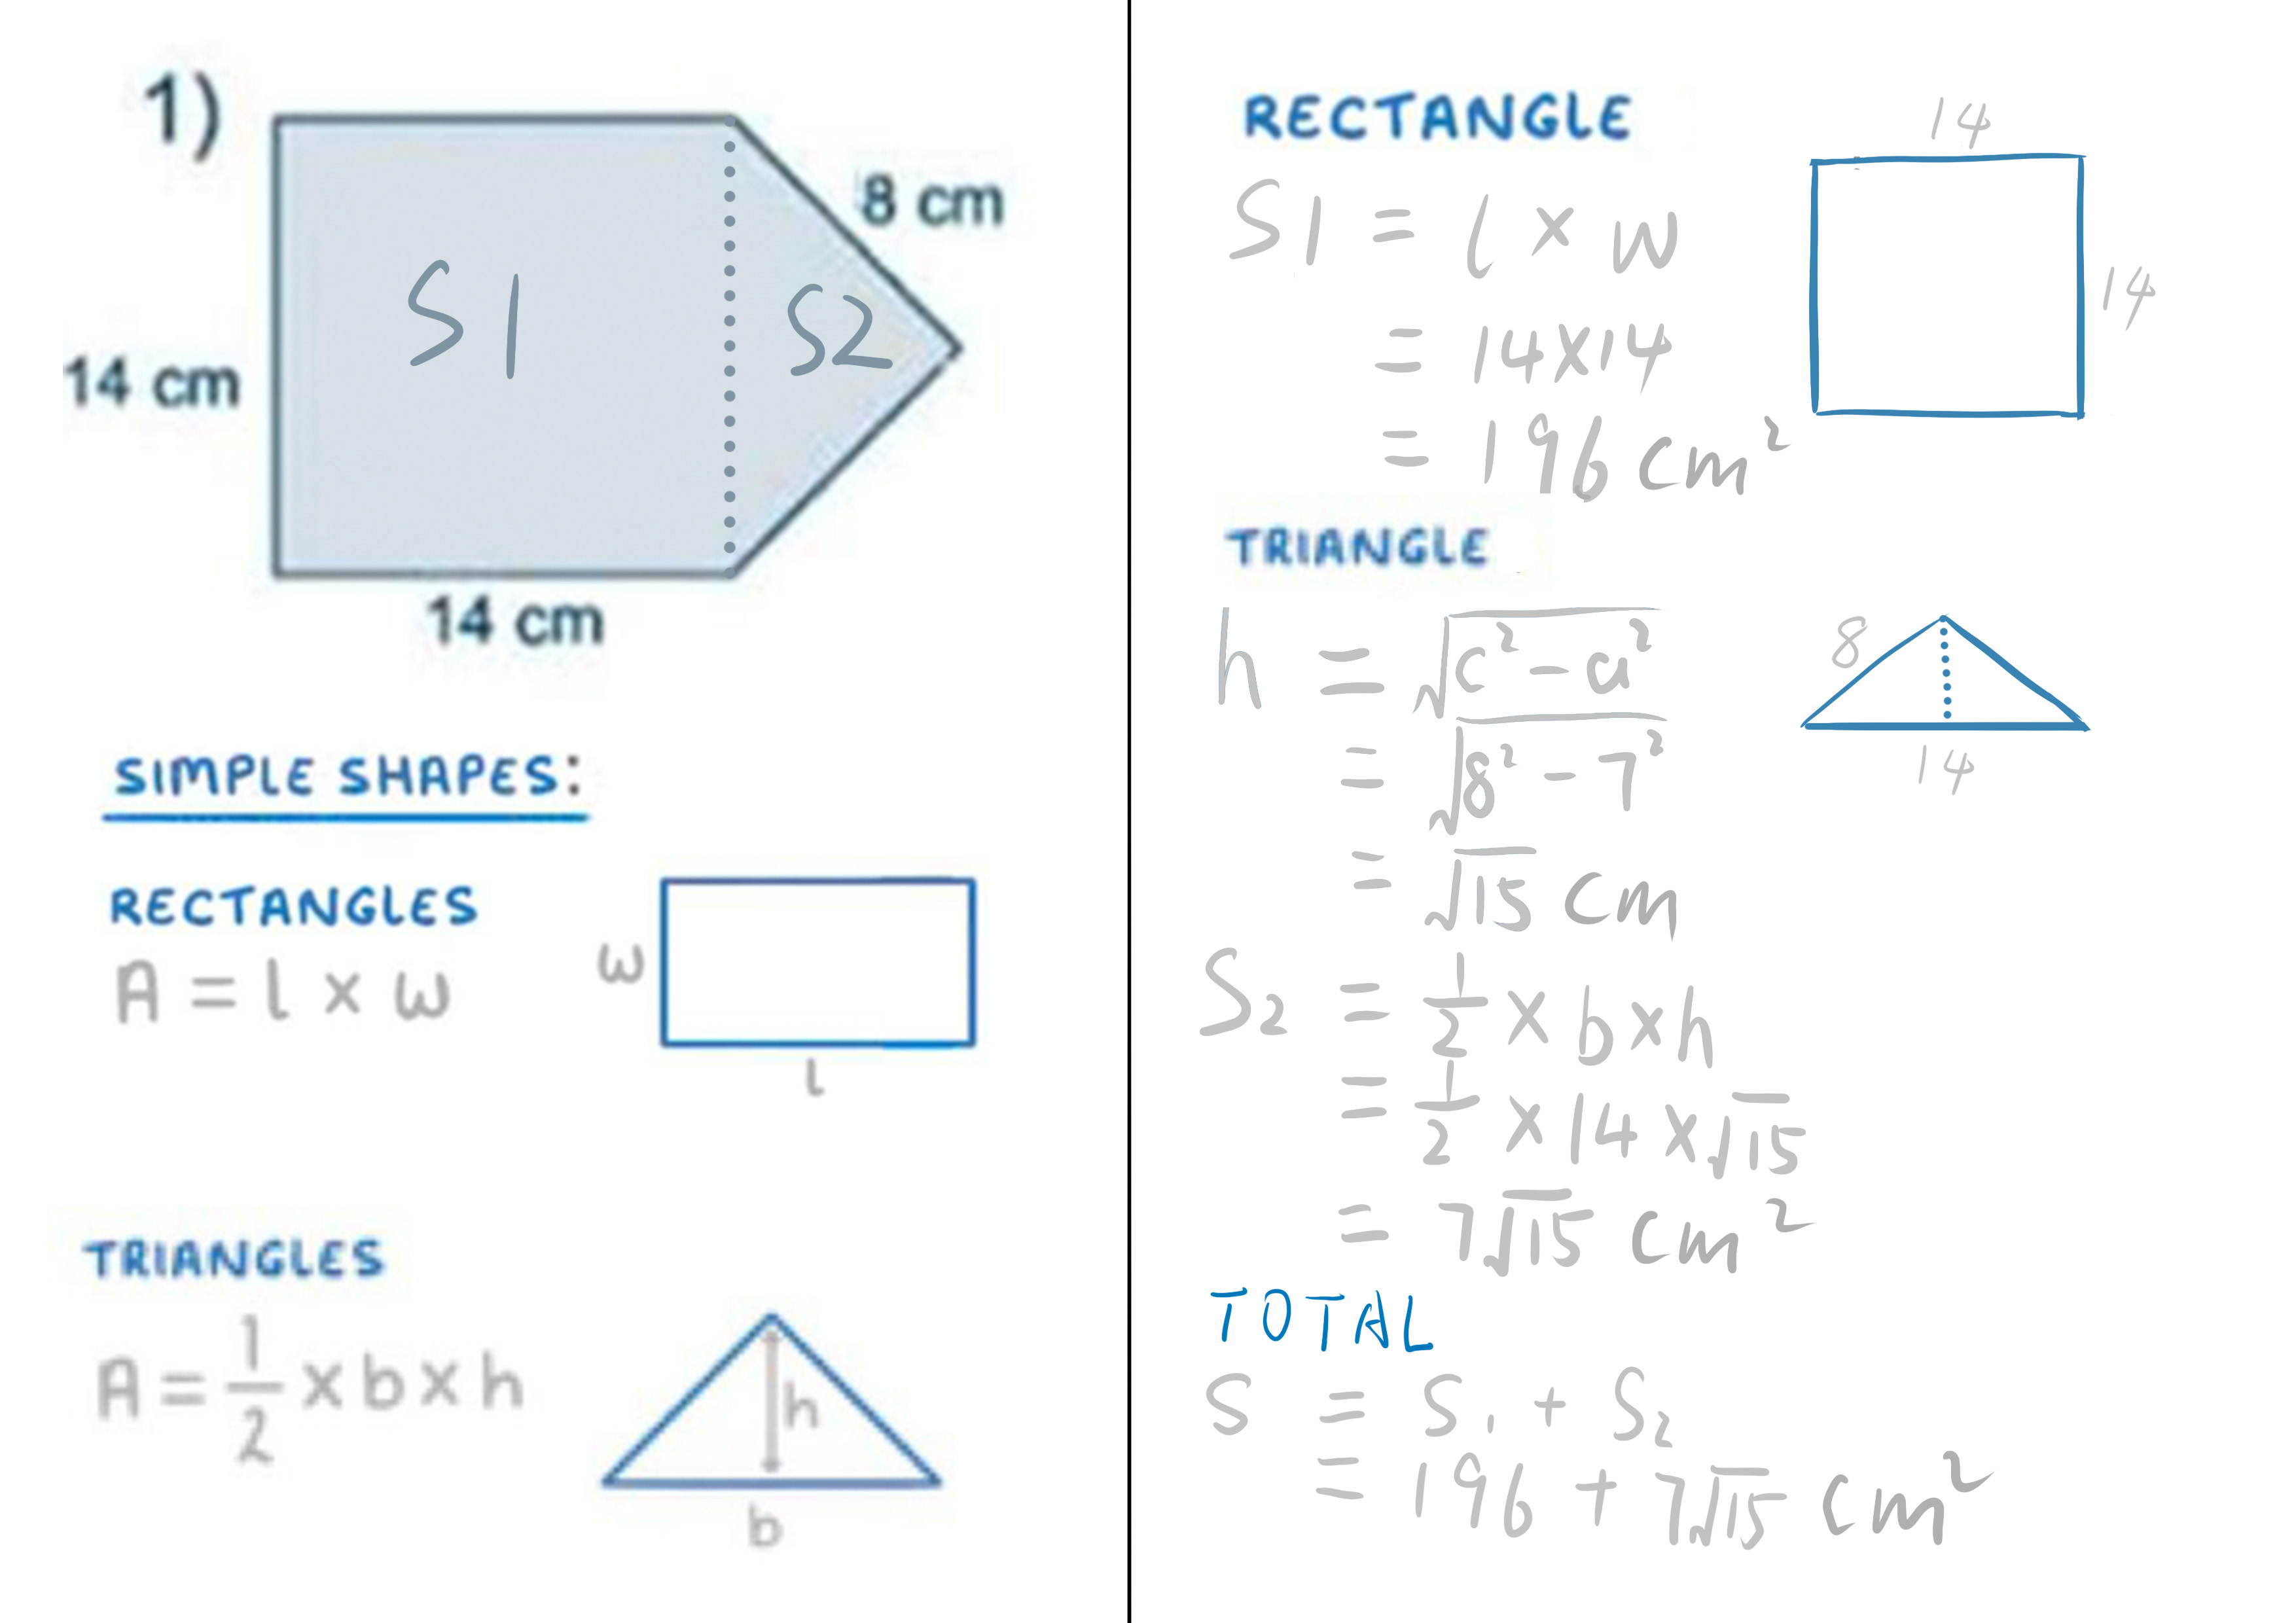 1)
8 cm
S1
S2
14 cm
14 cm
SIMPLE SHAPES:
RECTANGLES
A = l × w
w
l
TRIANGLES
A = 1/2 × b × h
h
b
RECTANGLE
14
S1 = l × w
14
= 14 × 14
= 196 cm²
TRIANGLE
h = √(c² − a²)
8
= √(8² − 7²)
14
= √15 cm
S₂ = 1/2 × b × h
= 1/2 × 14 × √15
= 7√15 cm²
TOTAL
S = S₁ + S₂
= 196 + 7√15 cm²